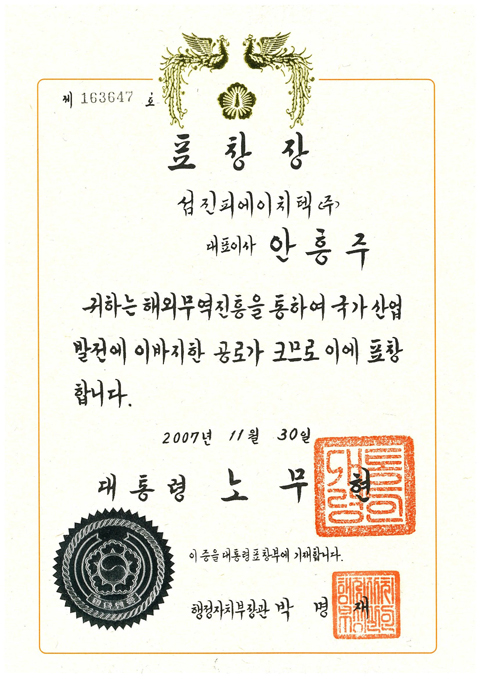 제 163647 호
표창장
섬진피에이치텍(주)
대표이사 안흥주
귀하는 해외무역진흥을 통하여 국가 산업
발전에 이바지한 공로가 크므로 이에 표창
합니다.
2007년 11월 30일
대통령 노무현
이 증을 대통령표창부에 기재합니다.
행정자치부장관 박명재